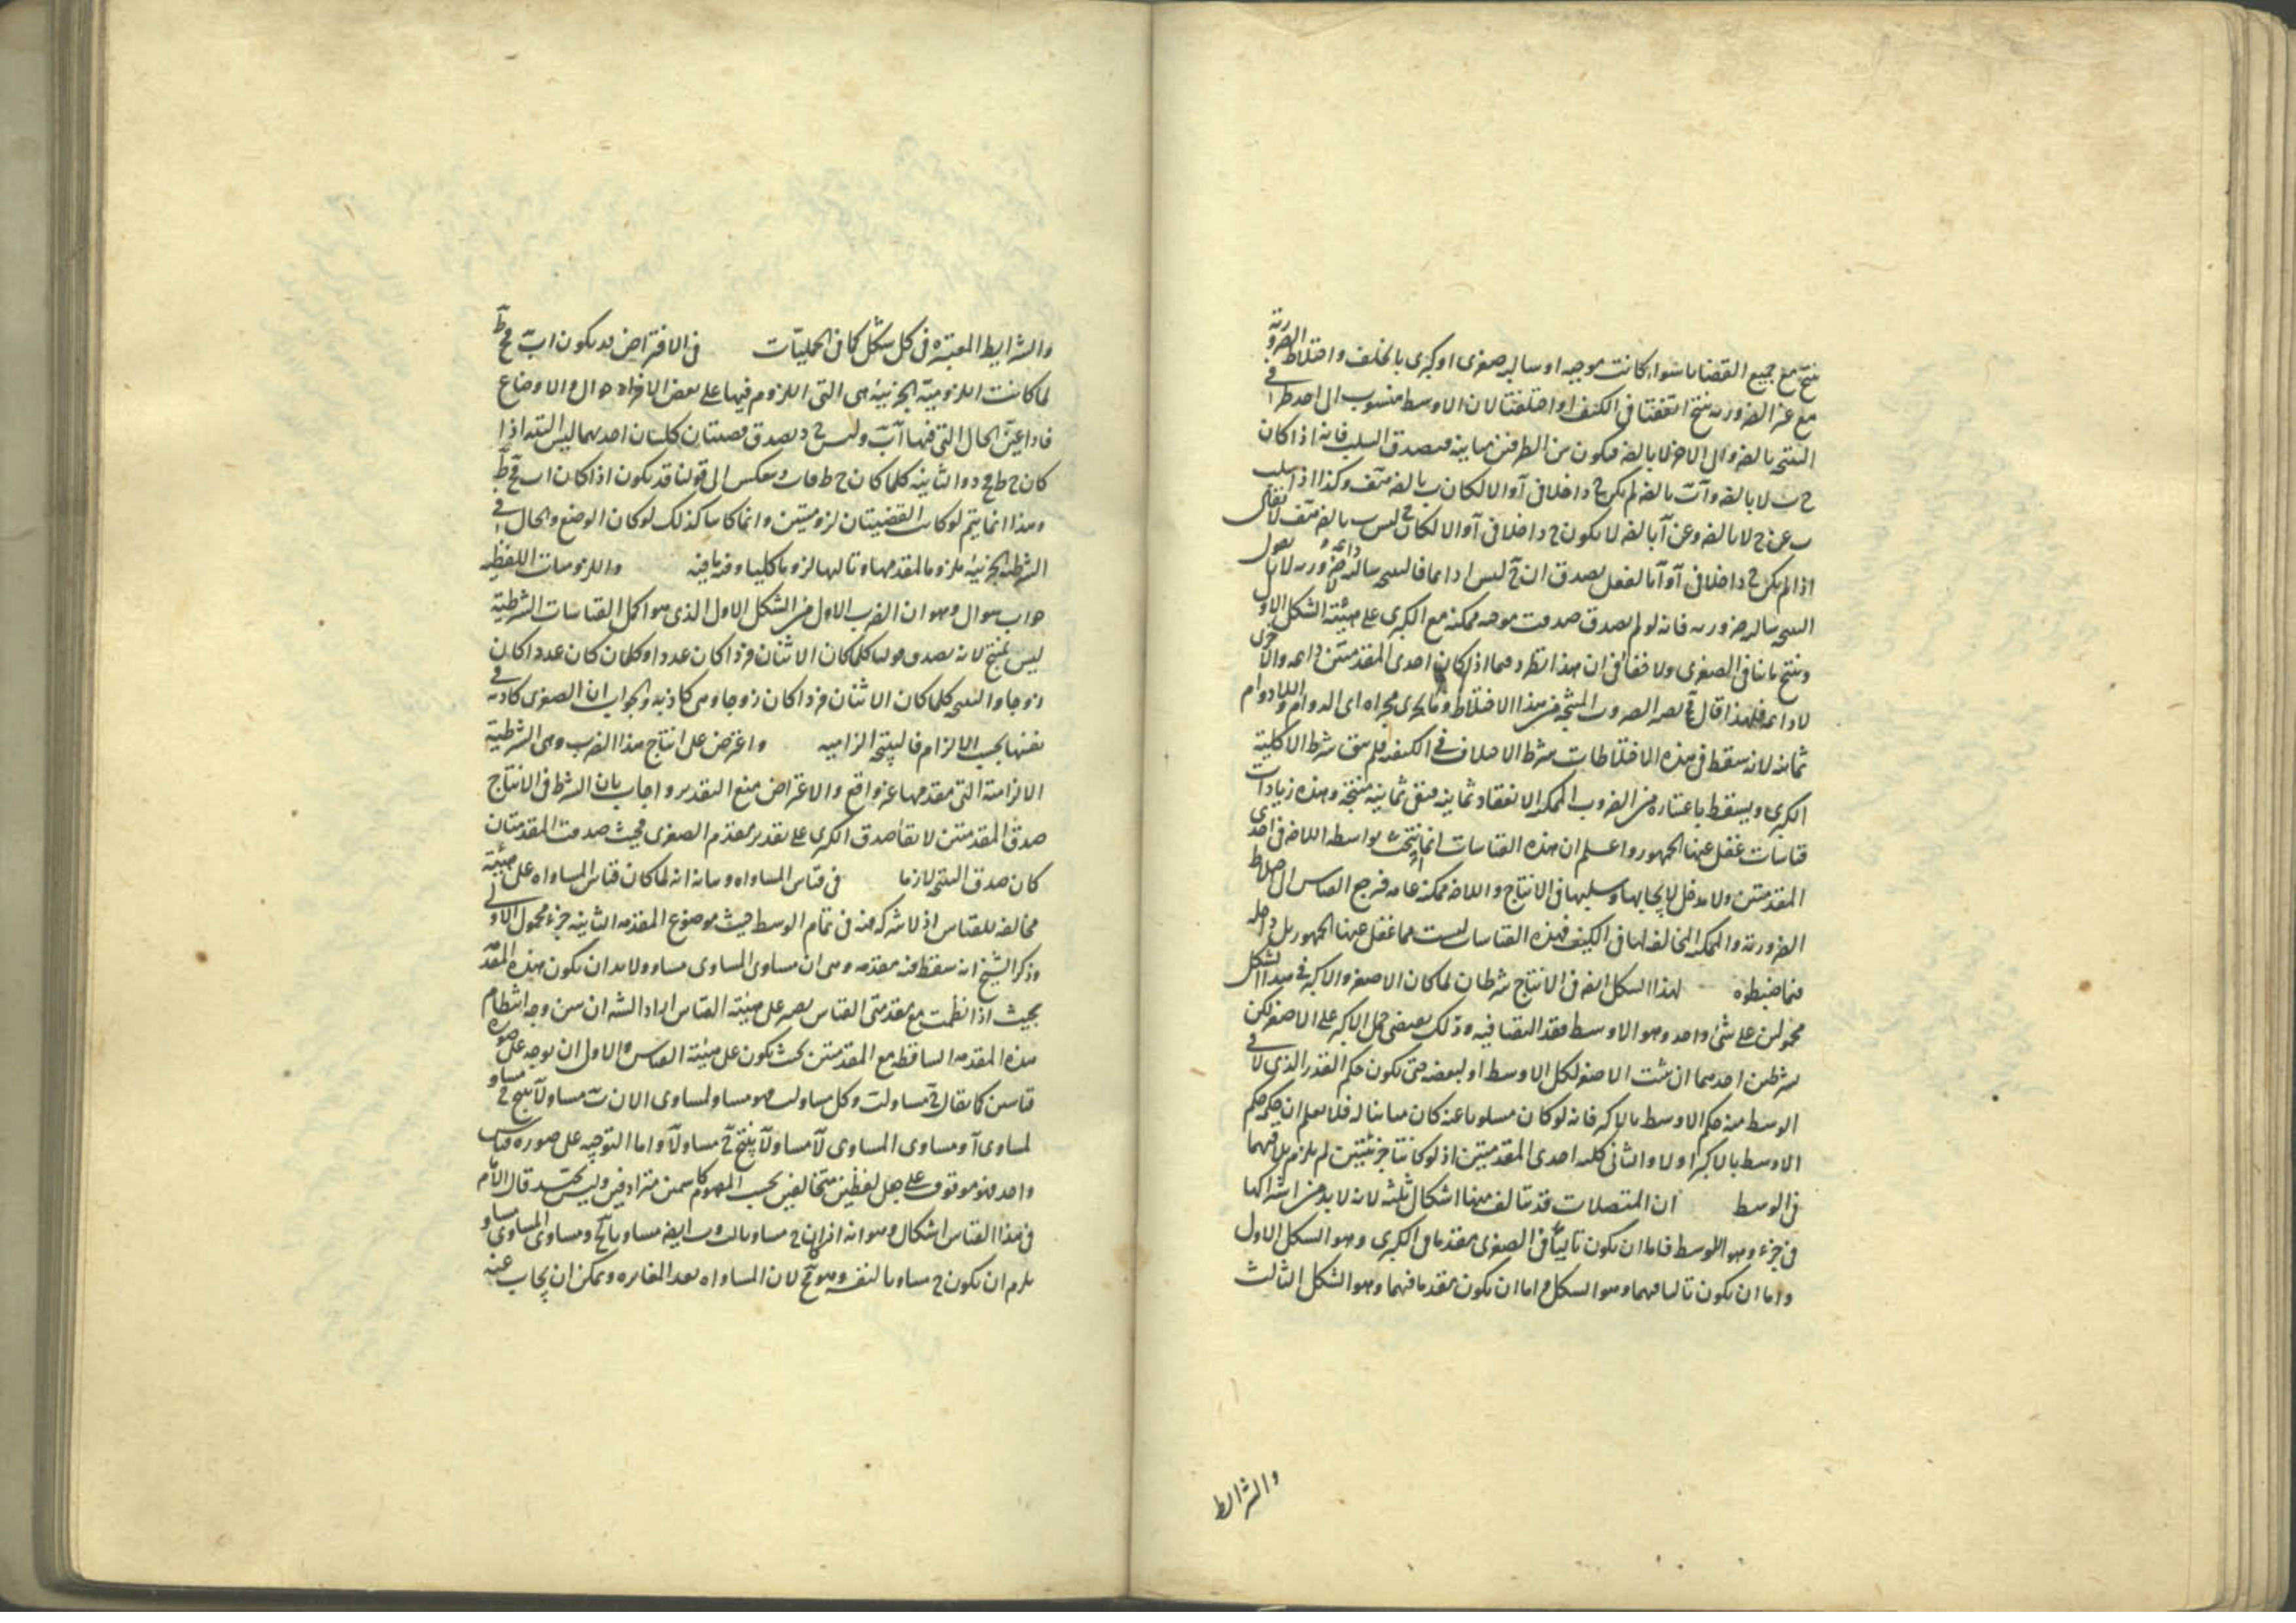 ينتج مع جميع القضايا سواء كانت موجبه او سالبه صغرى او كبرى بالخلف واختلاط الضرورية
مع غير الضروريه ينتج اتفقتا فى الكيف او اختلفتا لان الاوسط منسوب الى احد طرفى
النتيجه بالضروره والى الاخر لا بالضروره فيكون بين الطرفين مباينه فيصدق السلب فانه اذا كان
ج ب لا بالضه وآب بالضه لم يكن ج داخلا فى آ والا لكان ب بالضه هف وكذا اذا سلب
ب عن ج لا بالضه وعن آ بالضه لا يكون ج داخلا فى آ والا لكان ج ليس ب بالضه هف لا يقال
اذا لم يكن ج داخلا فى آ و آ بالفعل يصدق ان ج ليس ا دايما فالنتيجه سالبه دائمه لا ضروريه لانا نقول
النتيجه سالبه ضروريه فانه لو لم يصدق صدقت موجبه ممكنه مع الكبرى على هيئة الشكل الاول
وينتج ما ينافى الصغرى ولا خفا فى ان هذا يطرد فيما اذا كان احدى المقدمتين دايمه والاخرى
لا دايمه فلهذا قال يصير الضروب المنتجه من هذا الاختلاط وما يجرى مجراه اى الدوام واللادوام
ثمانيه لانه سقط فى هذه الاختلاطات شرط الاختلاف فى الكيف فلم يبق شرط الا كلية
الكبرى ويسقط باعتباره من الضروب الممكنة الانعقاد ثمانيه فتبقى ثمانيه منتجة وهذه زيادات
قياسات غفل عنها الجمهور واعلم ان هذه القياسات انما ينتج بواسطه اللاضروره فى احدى
المقدمتين ولا مدخل لايجابها وسلبها فى الانتاج واللاضروره ممكنه عامه فرجع القياس الى اختلاط
الضروريه والممكنه المخالفه لها فى الكيف فهذه القياسات ليست مما غفل عنها الجمهور بل داخله
فيما ضبطوه لهذا الشكل ايضا فى الانتاج شرطان لما كان الاصغر والاكبر فى هذا الشكل
محمولين على شئ واحد وهو الاوسط فقد التقيا فيه وذلك يقتضى حمل الاكبر على الاصغر لكن
بشرطين احدهما ان يثبت الاصغر لكل الاوسط او لبعضه حتى يكون حكم القدر الذى لاقى
الوسط منه حكم الاوسط بالاكبر فانه لو كان مسلوبا عنه كان مباينا له فلا يعلم ان حكمه حكم
الاوسط بالاكبر اولا والثانى كليه احدى المقدمتين اذ لو كانتا جزئيتين لم يلزم تلاقيهما
فى الوسط ان المتصلات قد تتالف منها اشكال ثلثه لانه لا بد من اشتراكها
فى جزء وهو الاوسط فاما ان يكون تاليا فى الصغرى مقدما فى الكبرى وهو الشكل الاول
واما ان يكون تاليا فيهما وهو الشكل واما ان يكون مقدما فيهما وهو الشكل الثالث
والشرائط
والشرايط المعتبره فى كل شكل كما فى الحمليات فى الافتراض قد يكون اب فج ط
لما كانت اللزومية الجزئية هى التى اللزوم فيها على بعض الاحوال والاوضاع
فاذا عين الحال التى فيها آب وليس ج د يصدق قضيتان كليتان احديهما ليس البته اذا
كان ح ط فج د والثانيه كلما كان ح ط فاب وينعكس الى قولنا قد يكون اذا كان اب فح ط
وهذا انما يتم لو كانت القضيتان لزوميتين وانما كانتا كذلك لو كان الوضع والحال فى
الشرطية الجزئية ملزوما لمقدمها وتاليها لزوما كليا وفيه ما فيه واللزوميات اللفظيه
جواب سوال وهو ان الضرب الاول من الشكل الاول الذى هو اكمل القياسات الشرطية
ليس بمنتج لانه يصدق قولنا كلما كان الاثنان فردا كان عددا وكلما كان عددا كان
زوجا والنتيجه كلما كان الاثنان فردا كان زوجا وهى كاذبه والجواب ان الصغرى كاذبه فى
نفسها بحسب الالزام فالنتيجة الزاميه واعترض على انتاج هذا الضرب وهى الشرطية
الالزامية التى مقدمها غير واقع والاعتراض منع التقدير واجاب بان الشرط فى الانتاج
صدق المقدمتين لا بقا صدق الكبرى على تقدير مقدم الصغرى فحيث صدقت المقدمتان
كان صدق النتيجه لازما فى قياس المساواه وبيانه انه لما كان قياس المساواه على هيئة
مخالفه للقياس اذ لا شركه فيه فى تمام الوسط حيث موضوع المقدمه الثانيه جزء محمول الاولى
وذكر الشيخ انه سقط منه مقدمه وهى ان مساوى المساوى مساو ولا بد ان يكون هذه المقدمة
بحيث اذا نظمت مع مقدمتى القياس يصير على هيئة القياس اراد الشه ان يبين وجه انتظام
هذه المقدمه الساقطه مع المقدمتين بحيث يكون على هيئة القياس الاول ان يوجه على صوره
قياسين كما يقال ج مساو لب وكل مساو لب هو مساو لمساوى الان ب مساو لا ينتج ج مساو
لمساوى آ ومساوى المساوى لآ مساو لآ ينتج ج مساو لآ واما التوجيه على صوره قياس
واحد فهو موقوف على جعل لفظين متخالفين بحسب المفهوم كاسمين مترادفين وليس بجيد قال الامام
فى هذا القياس اشكال وهو انه اذا كان ج مساويا لب وب ايضا مساويا لج ومساوى المساوى مساو
يلزم ان يكون ج مساويا لنفسه وهو مح لان المساواه بعد المغايره ويمكن ان يجاب عنه